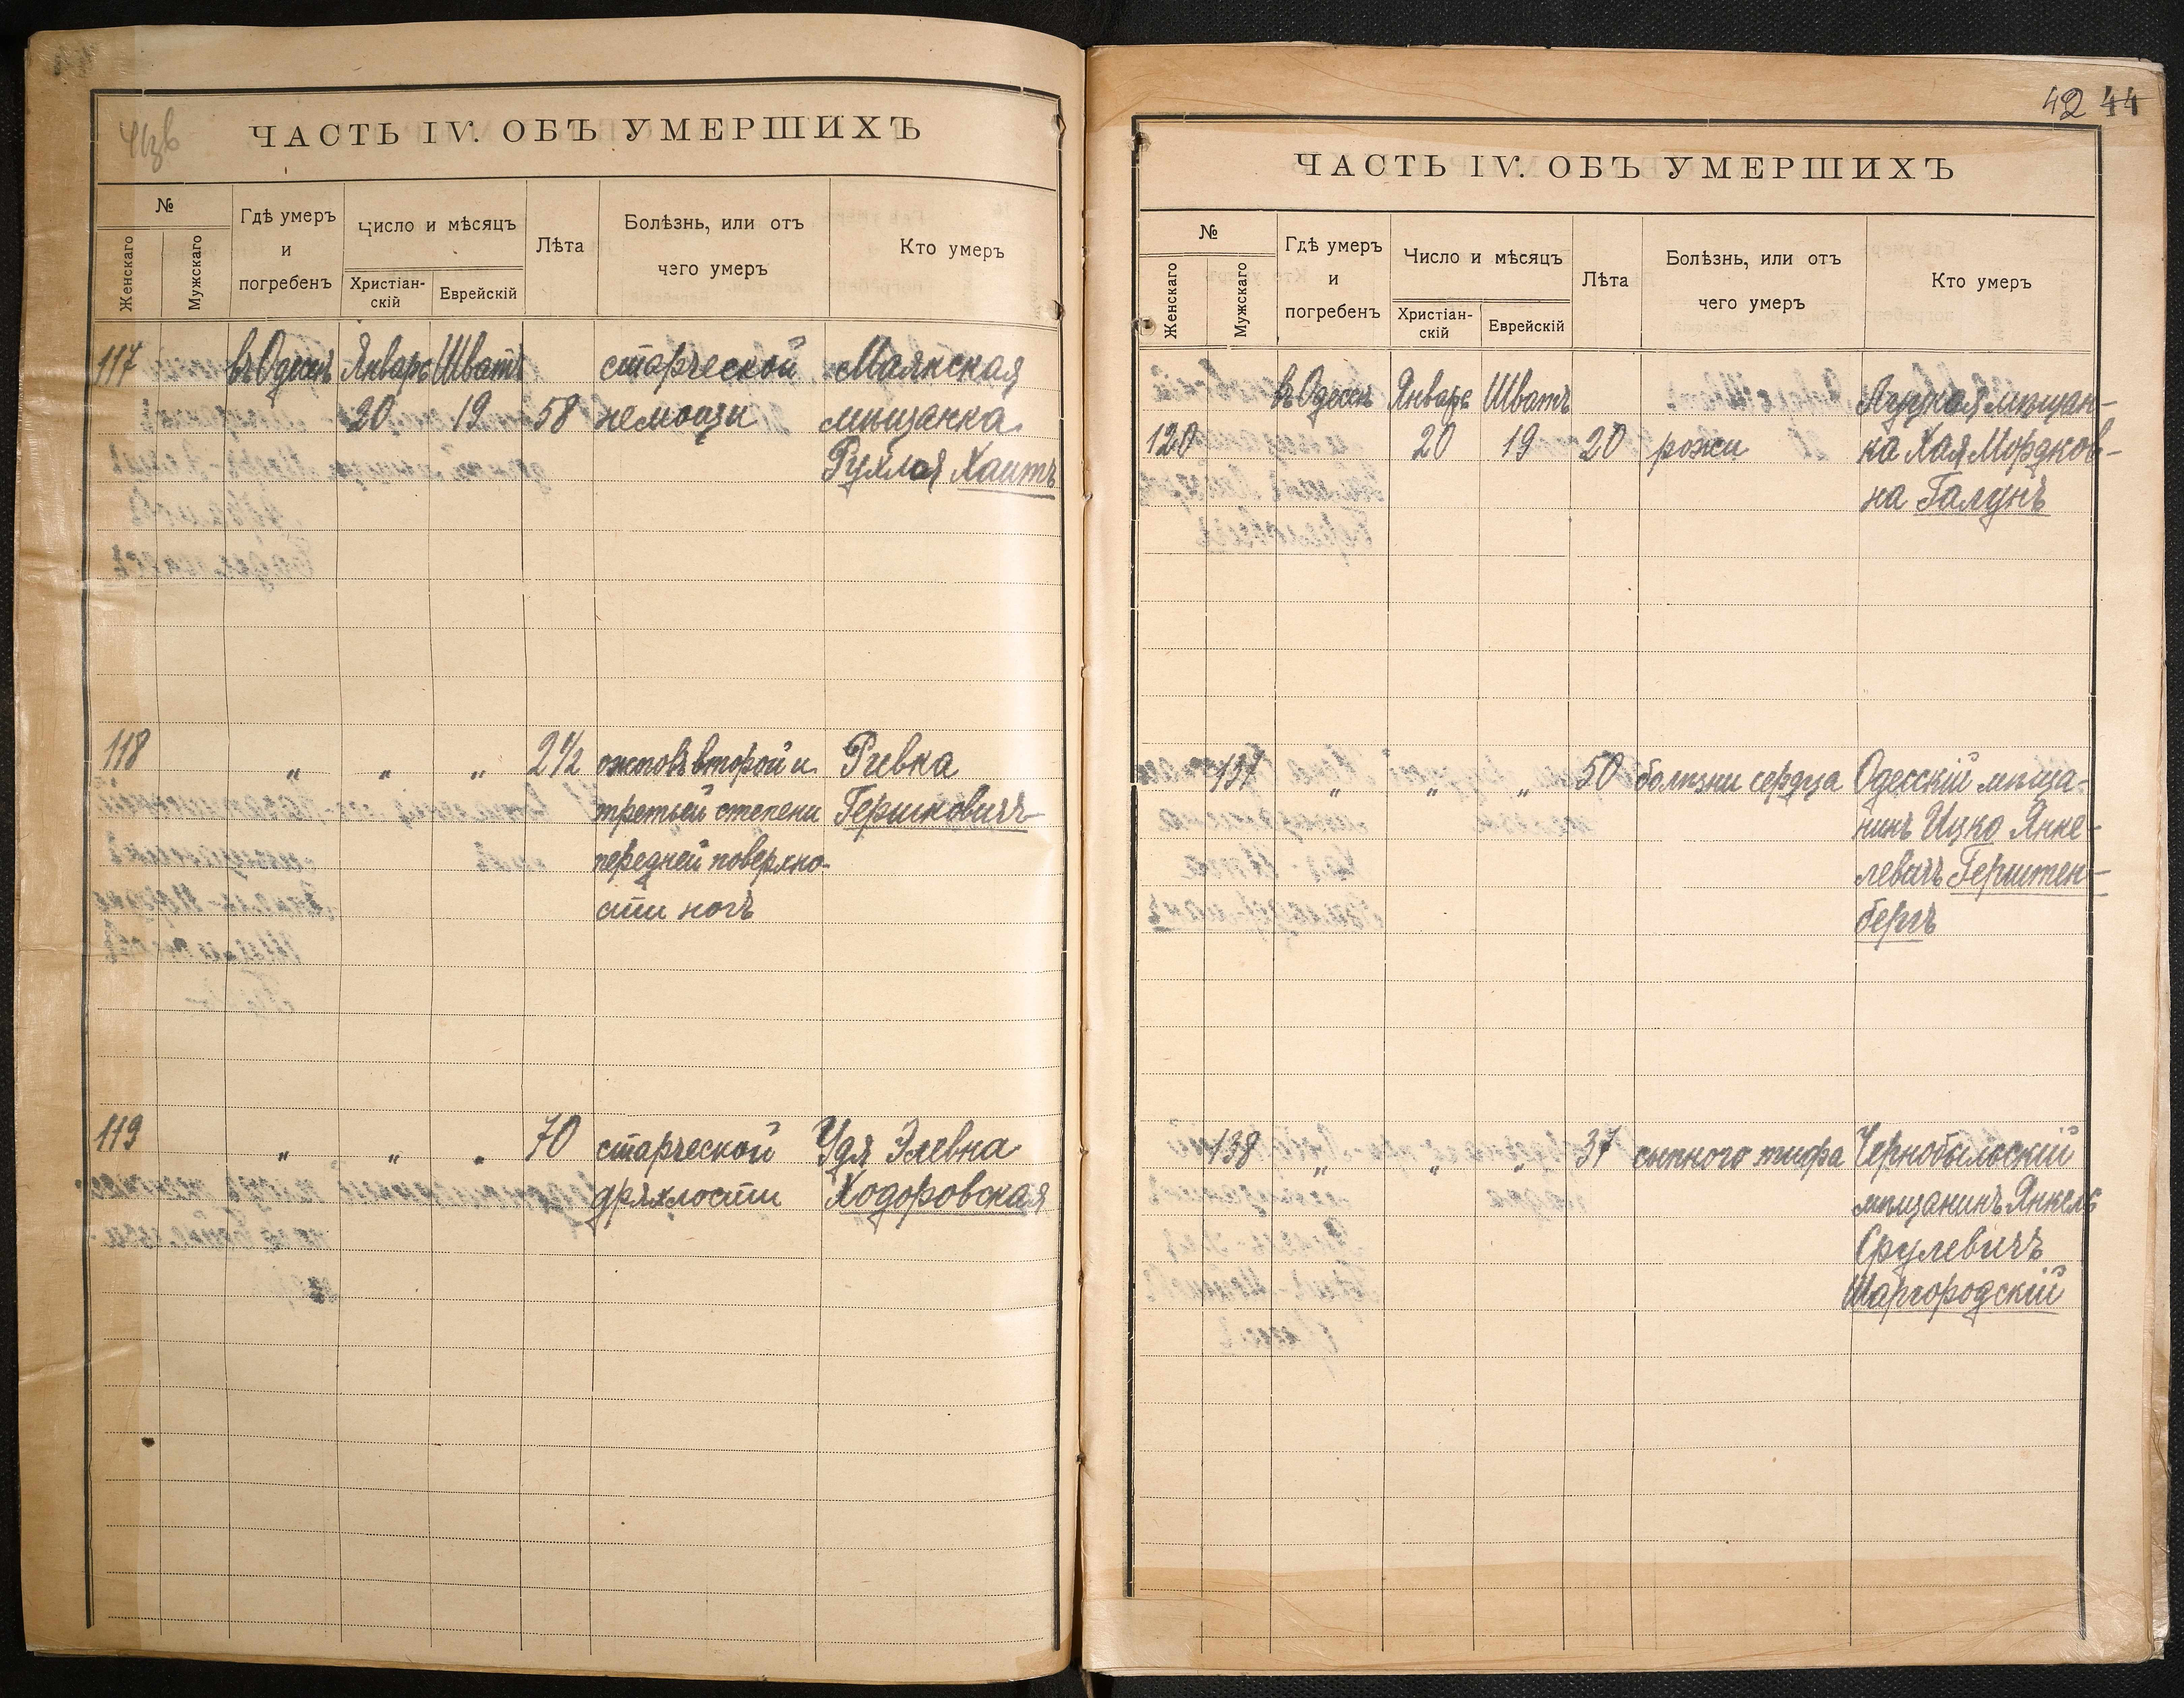 ЧАСТЬ IV. ОБЪ УМЕРШИХЪ
№
Женскаго
Мужскаго
Гдѣ умеръ
и
погребенъ
Число и мѣсяцъ
Христіан-
скій
Еврейскій
Лѣта
Болѣзнь, или отъ
чего умеръ
Кто умеръ
117 въ Одессѣ Январь Шватъ старческой Маякская
20 19 58 немощи мѣщанка
Рухля Хаитъ
118 „ „ „ 2½ ожоговъ второй и Ривка
третьей степени Гершковичъ
передней поверхно-
сти ногъ
119 „ „ „ 70 старческой Удя Элевна
дряхлости Ходоровская
42 44
ЧАСТЬ IV. ОБЪ УМЕРШИХЪ
№
Женскаго
Мужскаго
Гдѣ умеръ
и
погребенъ
Число и мѣсяцъ
Христіан-
скій
Еврейскій
Лѣта
Болѣзнь, или отъ
чего умеръ
Кто умеръ
въ Одессѣ Январь Шватъ Луцкая мѣщан-
120 20 19 20 рожи ка Хая Мордков-
на Галунъ
137 „ „ „ 50 болѣзни сердца Одесскій мѣща-
нинъ Ицко Янке-
левичъ Герштен-
бергъ
138 „ „ „ 37 сыпного тифа Чернобыльскій
мѣщанинъ Янкель
Срулевичъ
Шаргородскій